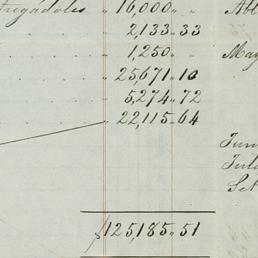 tregadoles " 16,000 " " Ab
" 2,133 " 33
" 1,250 " " May
" 25,671 " 10
" 5,274 " 72
" 22,115 " 64
Jun
Jul
Set
$125,185 " 51